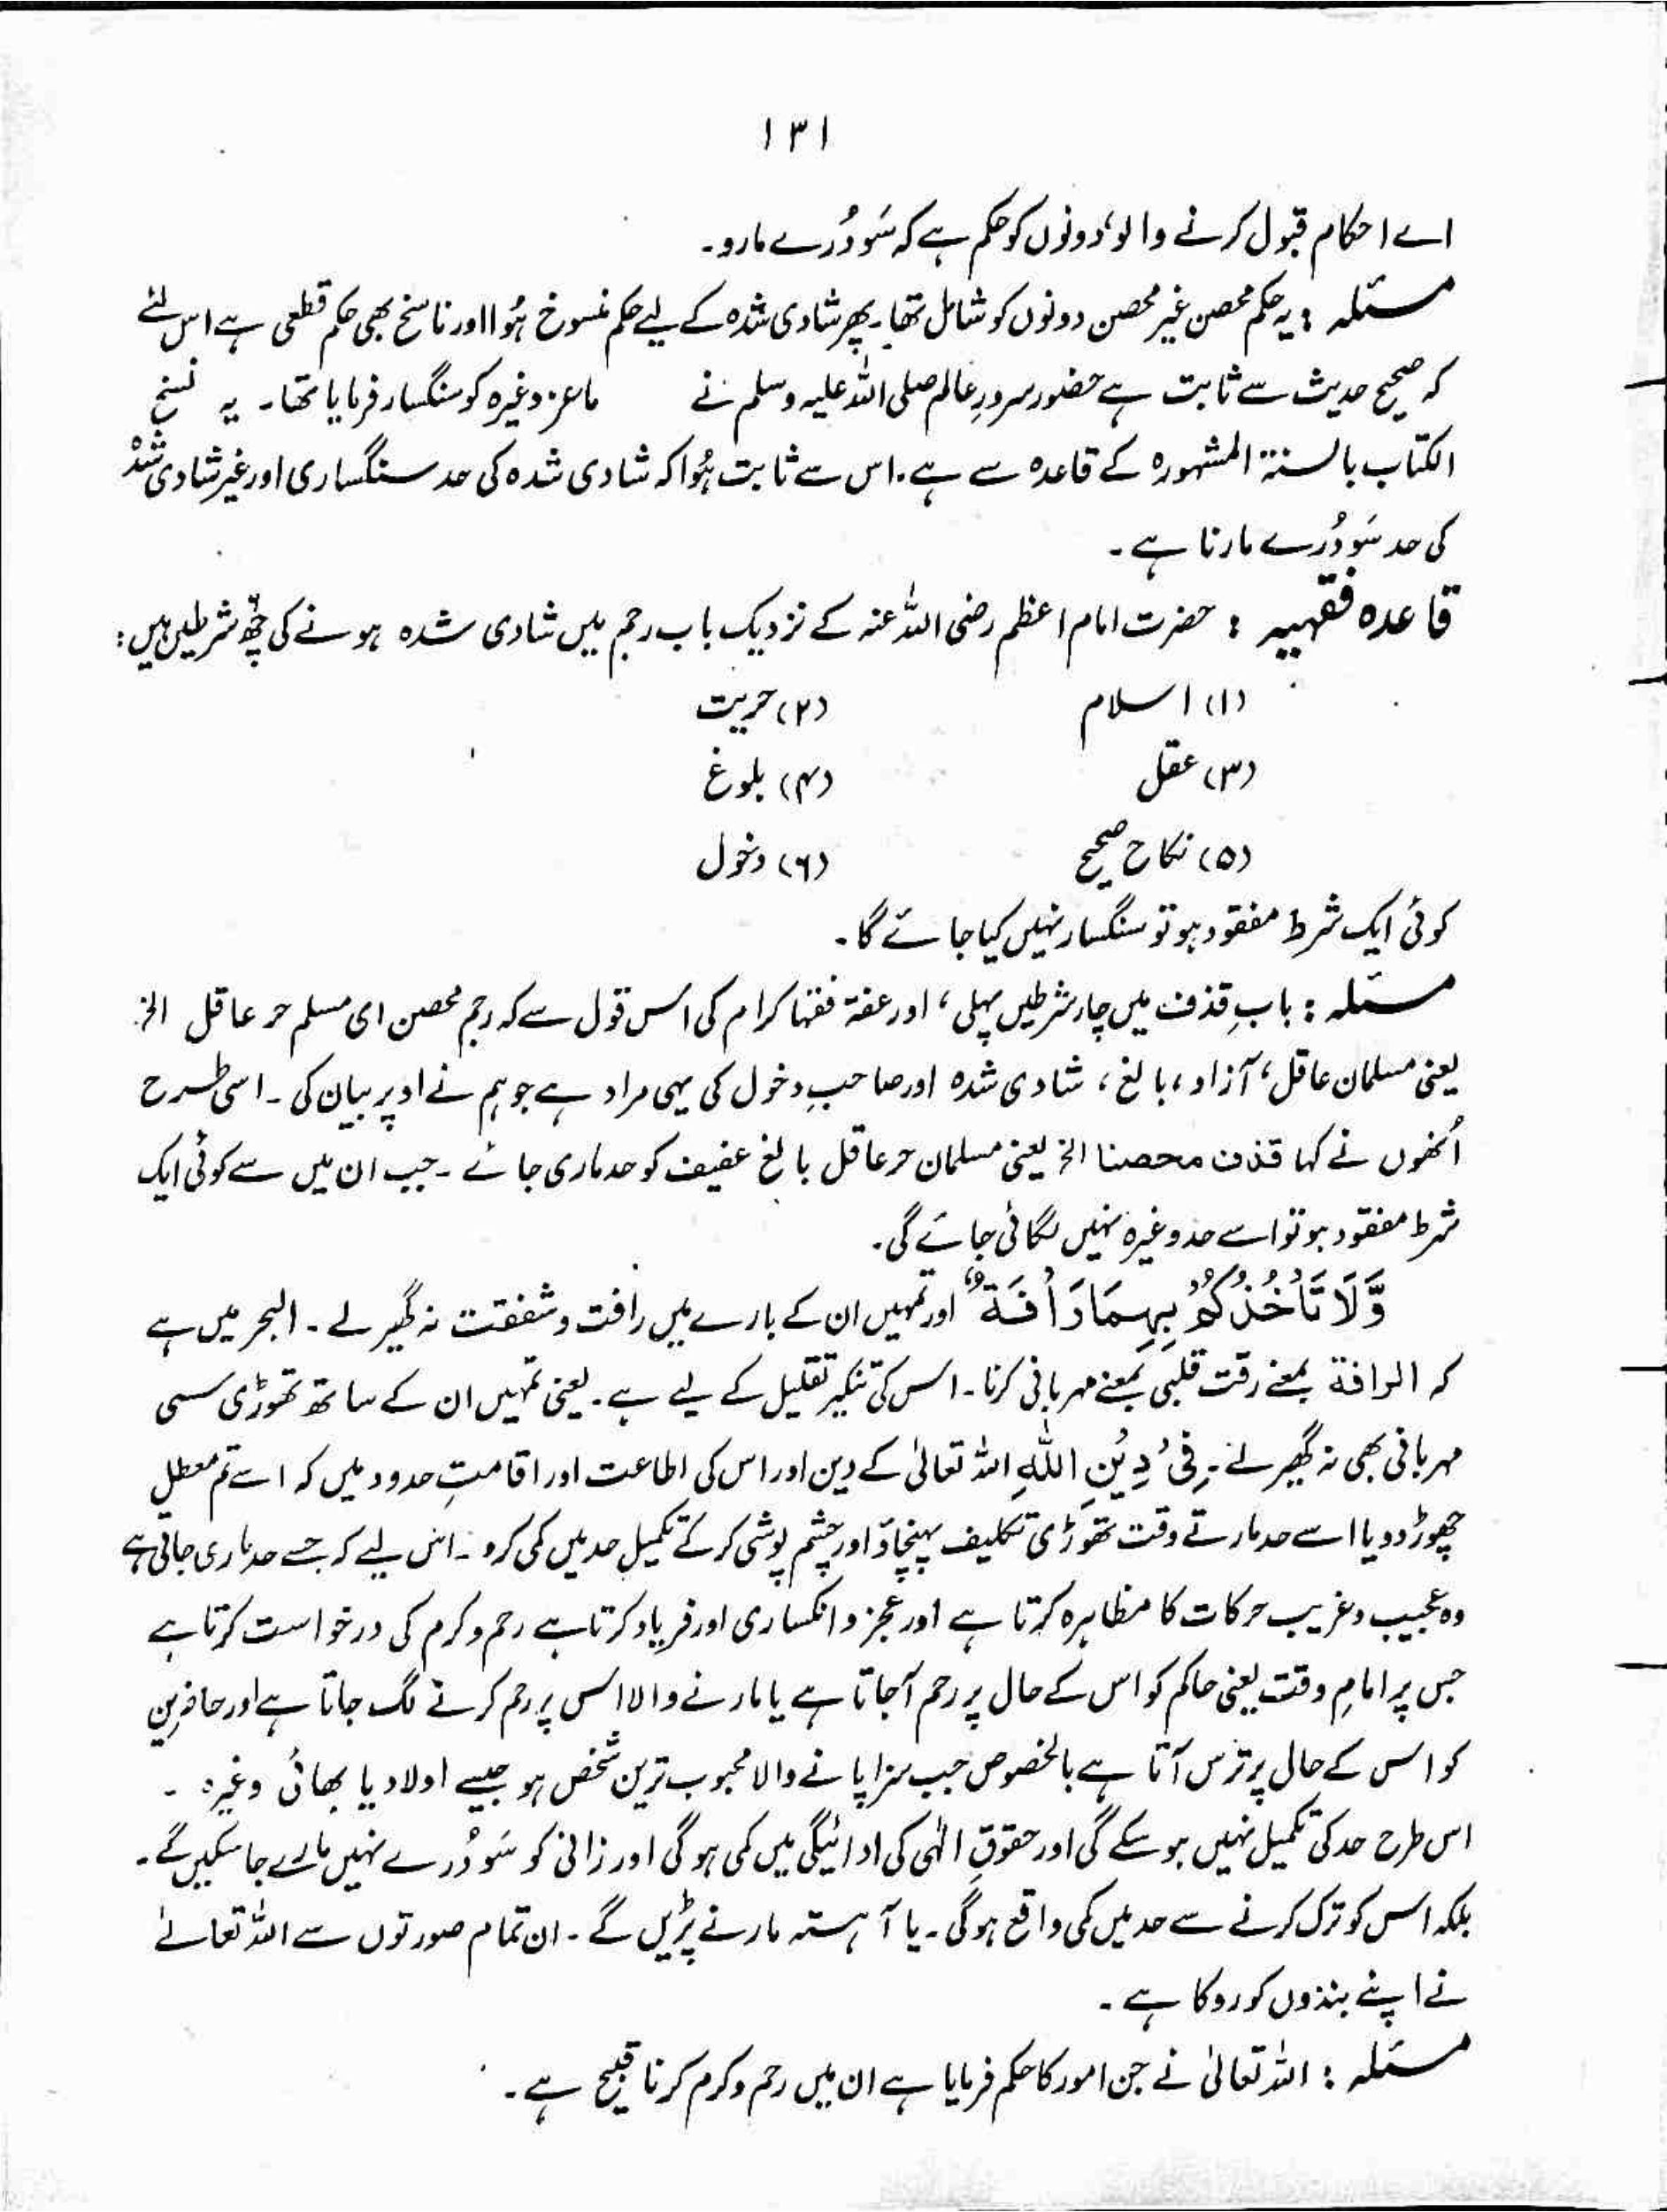 ۱۳۱
اے احکام قبول کرنے والو! دونوں کو حکم ہے کہ سَو دُرے مارو۔
مسئلہ : یہ حکم محصن غیر محصن دونوں کو شامل تھا۔ پھر شادی شدہ کے لیے حکم منسوخ ہُوا اور ناسخ بھی حکم قطعی ہے اس لئے
کہ صحیح حدیث سے ثابت ہے حضور سرورِ عالم صلی اللہ علیہ وسلم نے ماعز وغیرہ کو سنگسار فرمایا تھا۔ یہ نسخ
الکتاب بالسنۃ المشہورہ کے قاعدہ سے ہے۔ اس سے ثابت ہُوا کہ شادی شدہ کی حد سنگساری اور غیر شادی شدہ
کی حد سَو دُرے مارنا ہے۔
قاعدہ فقہیہ : حضرت امام اعظم رضی اللہ عنہ کے نزدیک باب رجم میں شادی شدہ ہونے کی چھ شرطیں ہیں :
(۱) اسلام (۲) حریت
(۳) عقل (۴) بلوغ
(۵) نکاح صحیح (۶) دخول
کوئی ایک شرط مفقود ہو تو سنگسار نہیں کیا جائے گا۔
مسئلہ : بابِ قذف میں چار شرطیں پہلی، اور عفۃ فقہا کرام کی اس قول سے کہ رجم محصن ای مسلم حر عاقل الخ
یعنی مسلمان عاقل، آزاد، بالغ، شادی شدہ اور صاحبِ دخول کی یہی مراد ہے جو ہم نے اوپر بیان کی۔ اسی طرح
اُنھوں نے کہا قذف محصنا الخ یعنی مسلمان حر عاقل بالغ عفیف کو حد ماری جائے۔ جب ان میں سے کوئی ایک
شرط مفقود ہو تو اسے حد وغیرہ نہیں لگائی جائے گی۔
وَّلَا تَاْخُذْکُمْ بِہِمَا رَاْفَۃٌ اور تمہیں ان کے بارے میں رافت و شفقت نہ گھیر لے۔ البحر میں ہے
کہ الرافۃ بمعنے رقت قلبی بمعنے مہربانی کرنا۔ اس کی تنکیر تقلیل کے لیے ہے۔ یعنی تمہیں ان کے ساتھ تھوڑی سی
مہربانی بھی نہ گھیر لے۔ فِیْ دِیْنِ اللّٰہِ اللہ تعالیٰ کے دین اور اس کی اطاعت اور اقامتِ حدود میں کہ اسے تم معطل
چھوڑ دو یا اسے حد مارتے وقت تھوڑی تکلیف پہنچاؤ اور چشم پوشی کر کے تکمیل حد میں کمی کرو۔ اس لیے کہ جسے حد ماری جاتی ہے
وہ عجیب و غریب حرکات کا مظاہرہ کرتا ہے اور عجز و انکساری اور فریاد کرتا ہے رحم و کرم کی درخواست کرتا ہے
جس پر امامِ وقت یعنی حاکم کو اس کے حال پر رحم آجاتا ہے یا مارنے والا اس پر رحم کرنے لگ جاتا ہے اور حاضرین
کو اس کے حال پر ترس آتا ہے بالخصوص جب سزا پانے والا محبوب ترین شخص ہو جیسے اولاد یا بھائی وغیرہ۔
اس طرح حد کی تکمیل نہیں ہو سکے گی اور حقوقِ الٰہی کی ادائیگی میں کمی ہو گی اور زانی کو سَو دُرے نہیں مارے جا سکیں گے۔
بلکہ اس کو ترک کرنے سے حد میں کمی واقع ہو گی۔ یا آہستہ مارنے پڑیں گے۔ ان تمام صورتوں سے اللہ تعالےٰ
نے اپنے بندوں کو روکا ہے۔
مسئلہ : اللہ تعالیٰ نے جن امور کا حکم فرمایا ہے ان میں رحم و کرم کرنا قبیح ہے۔